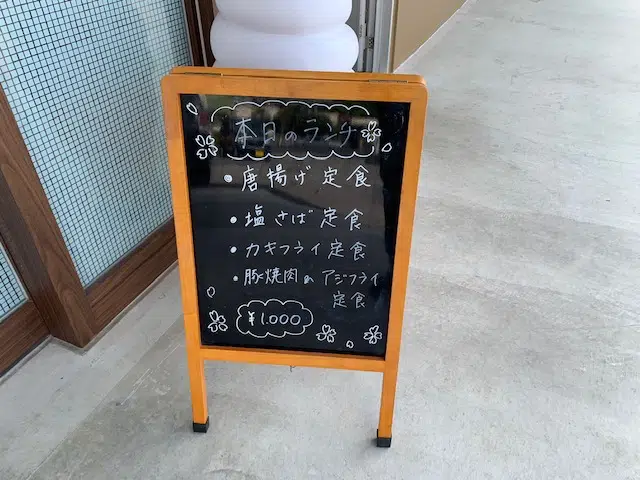 本日のランチ
・唐揚げ定食
・塩さば定食
・カキフライ定食
・豚焼肉&アジフライ
定食
¥1.000